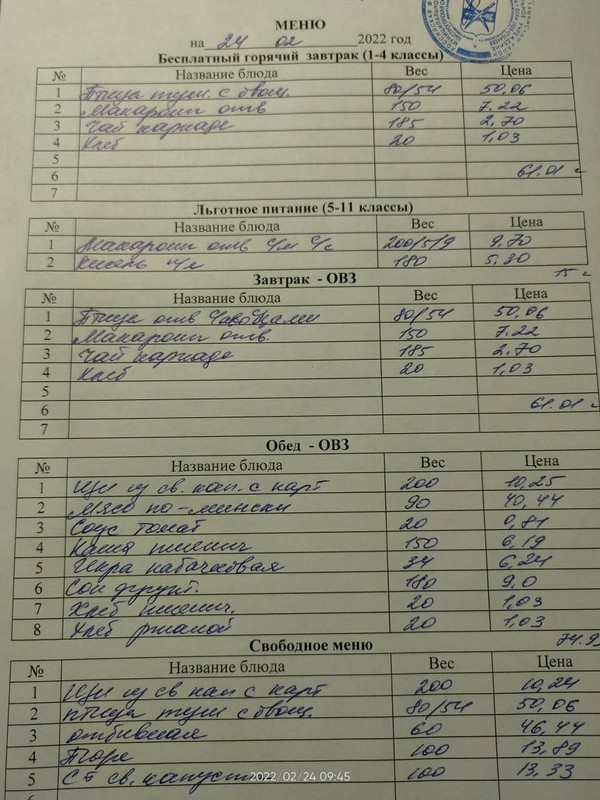 МЕНЮ
на 24 02 2022 год
Бесплатный горячий завтрак (1-4 классы)
№ Название блюда Вес Цена
1 Птица туш. с овощ. 80/54 50,06
2 Макароны отв 150 7.22
3 Чай каркаде 185 2,70
4 Хлеб 20 1,03
5
6 61.01
7
Льготное питание (5-11 классы)
№ Название блюда Вес Цена
1 Макароны отв с/м с/с 200/5/9 9.70
2 Кисель 180 5.30
15
Завтрак - ОВЗ
№ Название блюда Вес Цена
1 Птица отв 80/54 50,06
2 Макароны отв. 150 7.22
3 Чай каркаде 185 2.70
4 Хлеб 20 1,03
5
6 61.01
7
Обед - ОВЗ
№ Название блюда Вес Цена
1 Щи из св. кап. с карт 200 10,25
2 Мясо по-мински 90 40,44
3 Соус томат 20 0,81
4 Каша пшенич 150 6,19
5 Икра кабачковая 34 6,24
6 Сок фрукт. 180 9,0
7 Хлеб пшенич. 20 1,03
8 Хлеб ржаной 20 1,03
Свободное меню
№ Название блюда Вес Цена
1 Щи из св кап с карт 200 10,24
2 птица туш с овощ. 80/54 50,06
3 отбивная 60 46,44
4 Пюре 100 13,89
5 св. капусты 100 13,33
2022/02/24 09:45